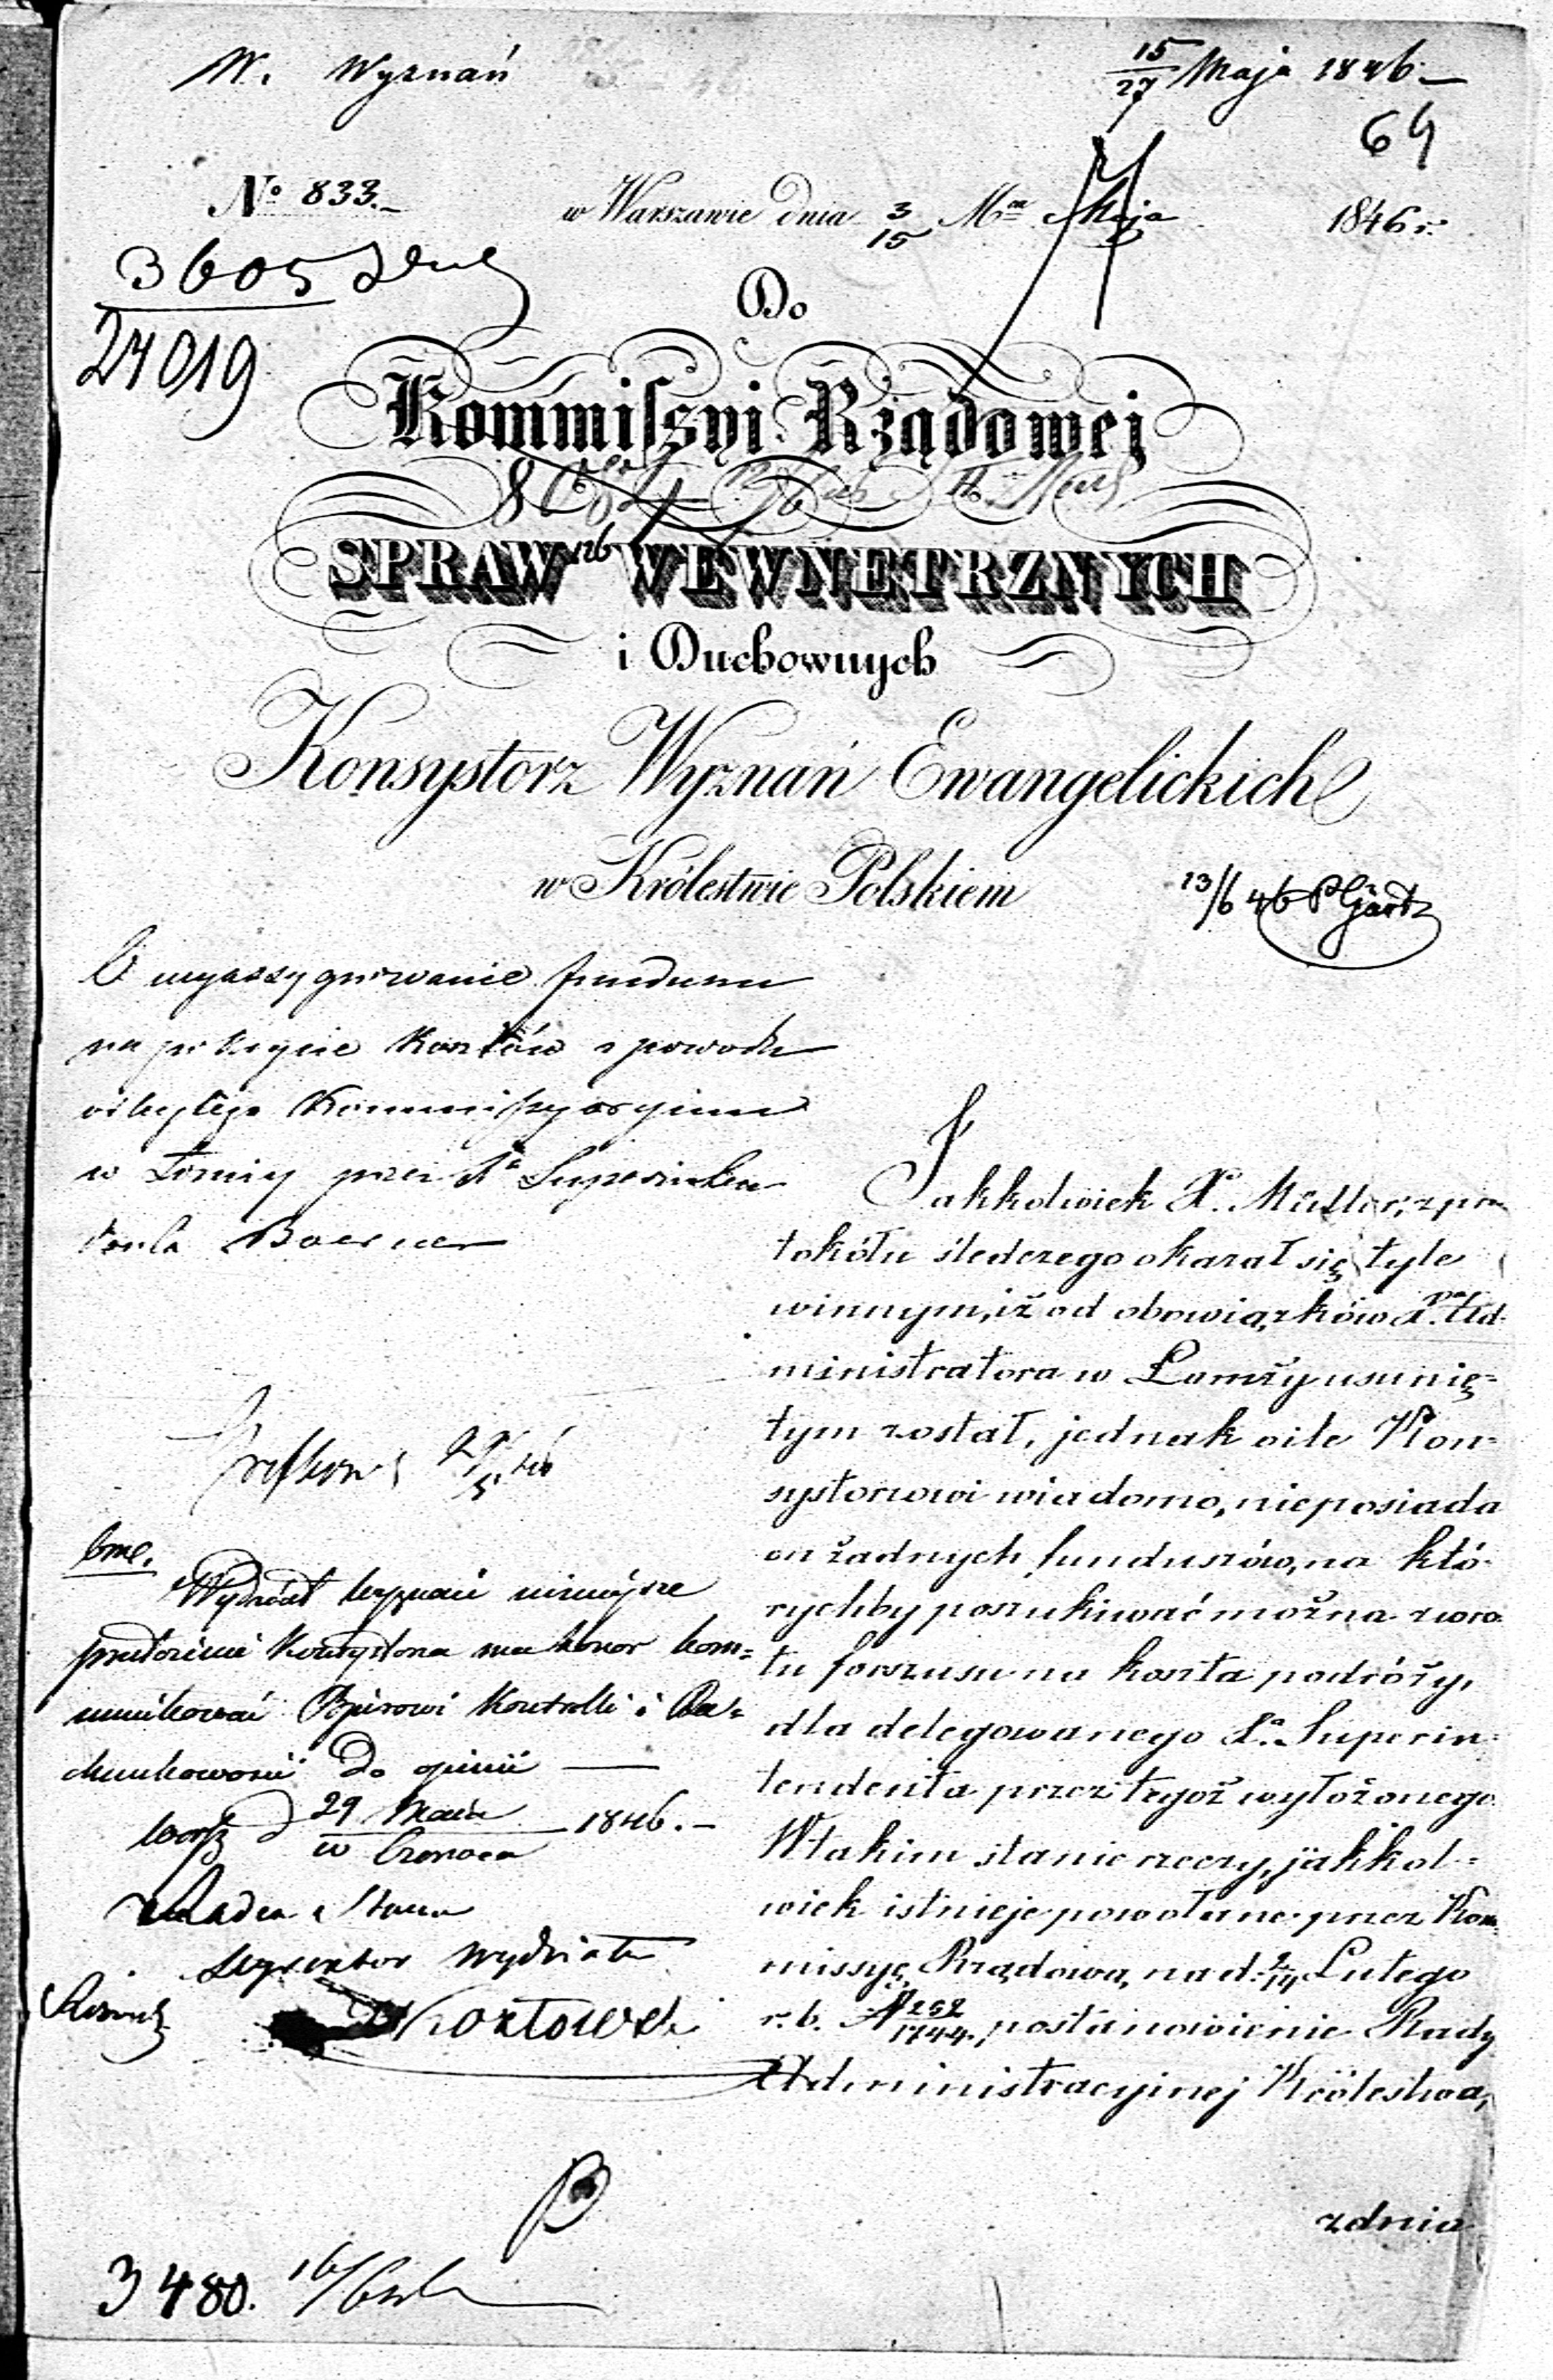 W. Wyznań
15/27 Maja 1846.
64
No 833.
w Warszawie dnia 3/15 Mca Maja 1846 r.
3605
24019
Do
Kommiſsyi Rządowej
SPRAW WEWNĘTRZNYCH
i Duchownych
Konsystorz Wyznań Ewangelickich
w Królestwie Polskiem
13/6 46
O wyassygnowanie funduszu
na pokrycie kosztów z powodu
odbytego Kommiſsyoryum
w Łomży przez Xa Superinten
denta Boerner
Jakkolwiek X. Müller, z pro
tokółu śledczego okazał się tyle
winnym, iż od obowiązków X. Ad-
ministratora w Łomży usunię-
tym został, jednak o ile Kon-
systorzowi wiadomo, nieposiada
on żadnych funduszów, na któ-
rychby poszukiwać można zwro-
tu forszusu na koszta podróży,
dla delegowanego Xa. Superin-
tendenta przez tegoż wyłożonego.
W takim stanie rzeczy, jakkol-
wiek istnieje powołane przez Kom
missyę Rządową na d. 2/14 Lutego
r. b. N 252/1744, postanowienie Rady
Administracyjnej Królestwa,
z dnia
Wydział Wyznań niniejsze
przełożenie Konsystorza ma honor kom-
munikować Biurowi Kontrolli i Ra-
chunkowości do opinii
Warsz d 29 Maia / 10 Czerwca 1846.
Radca Stanu
Dyrektor Wydziału
Kozłowski
3480.